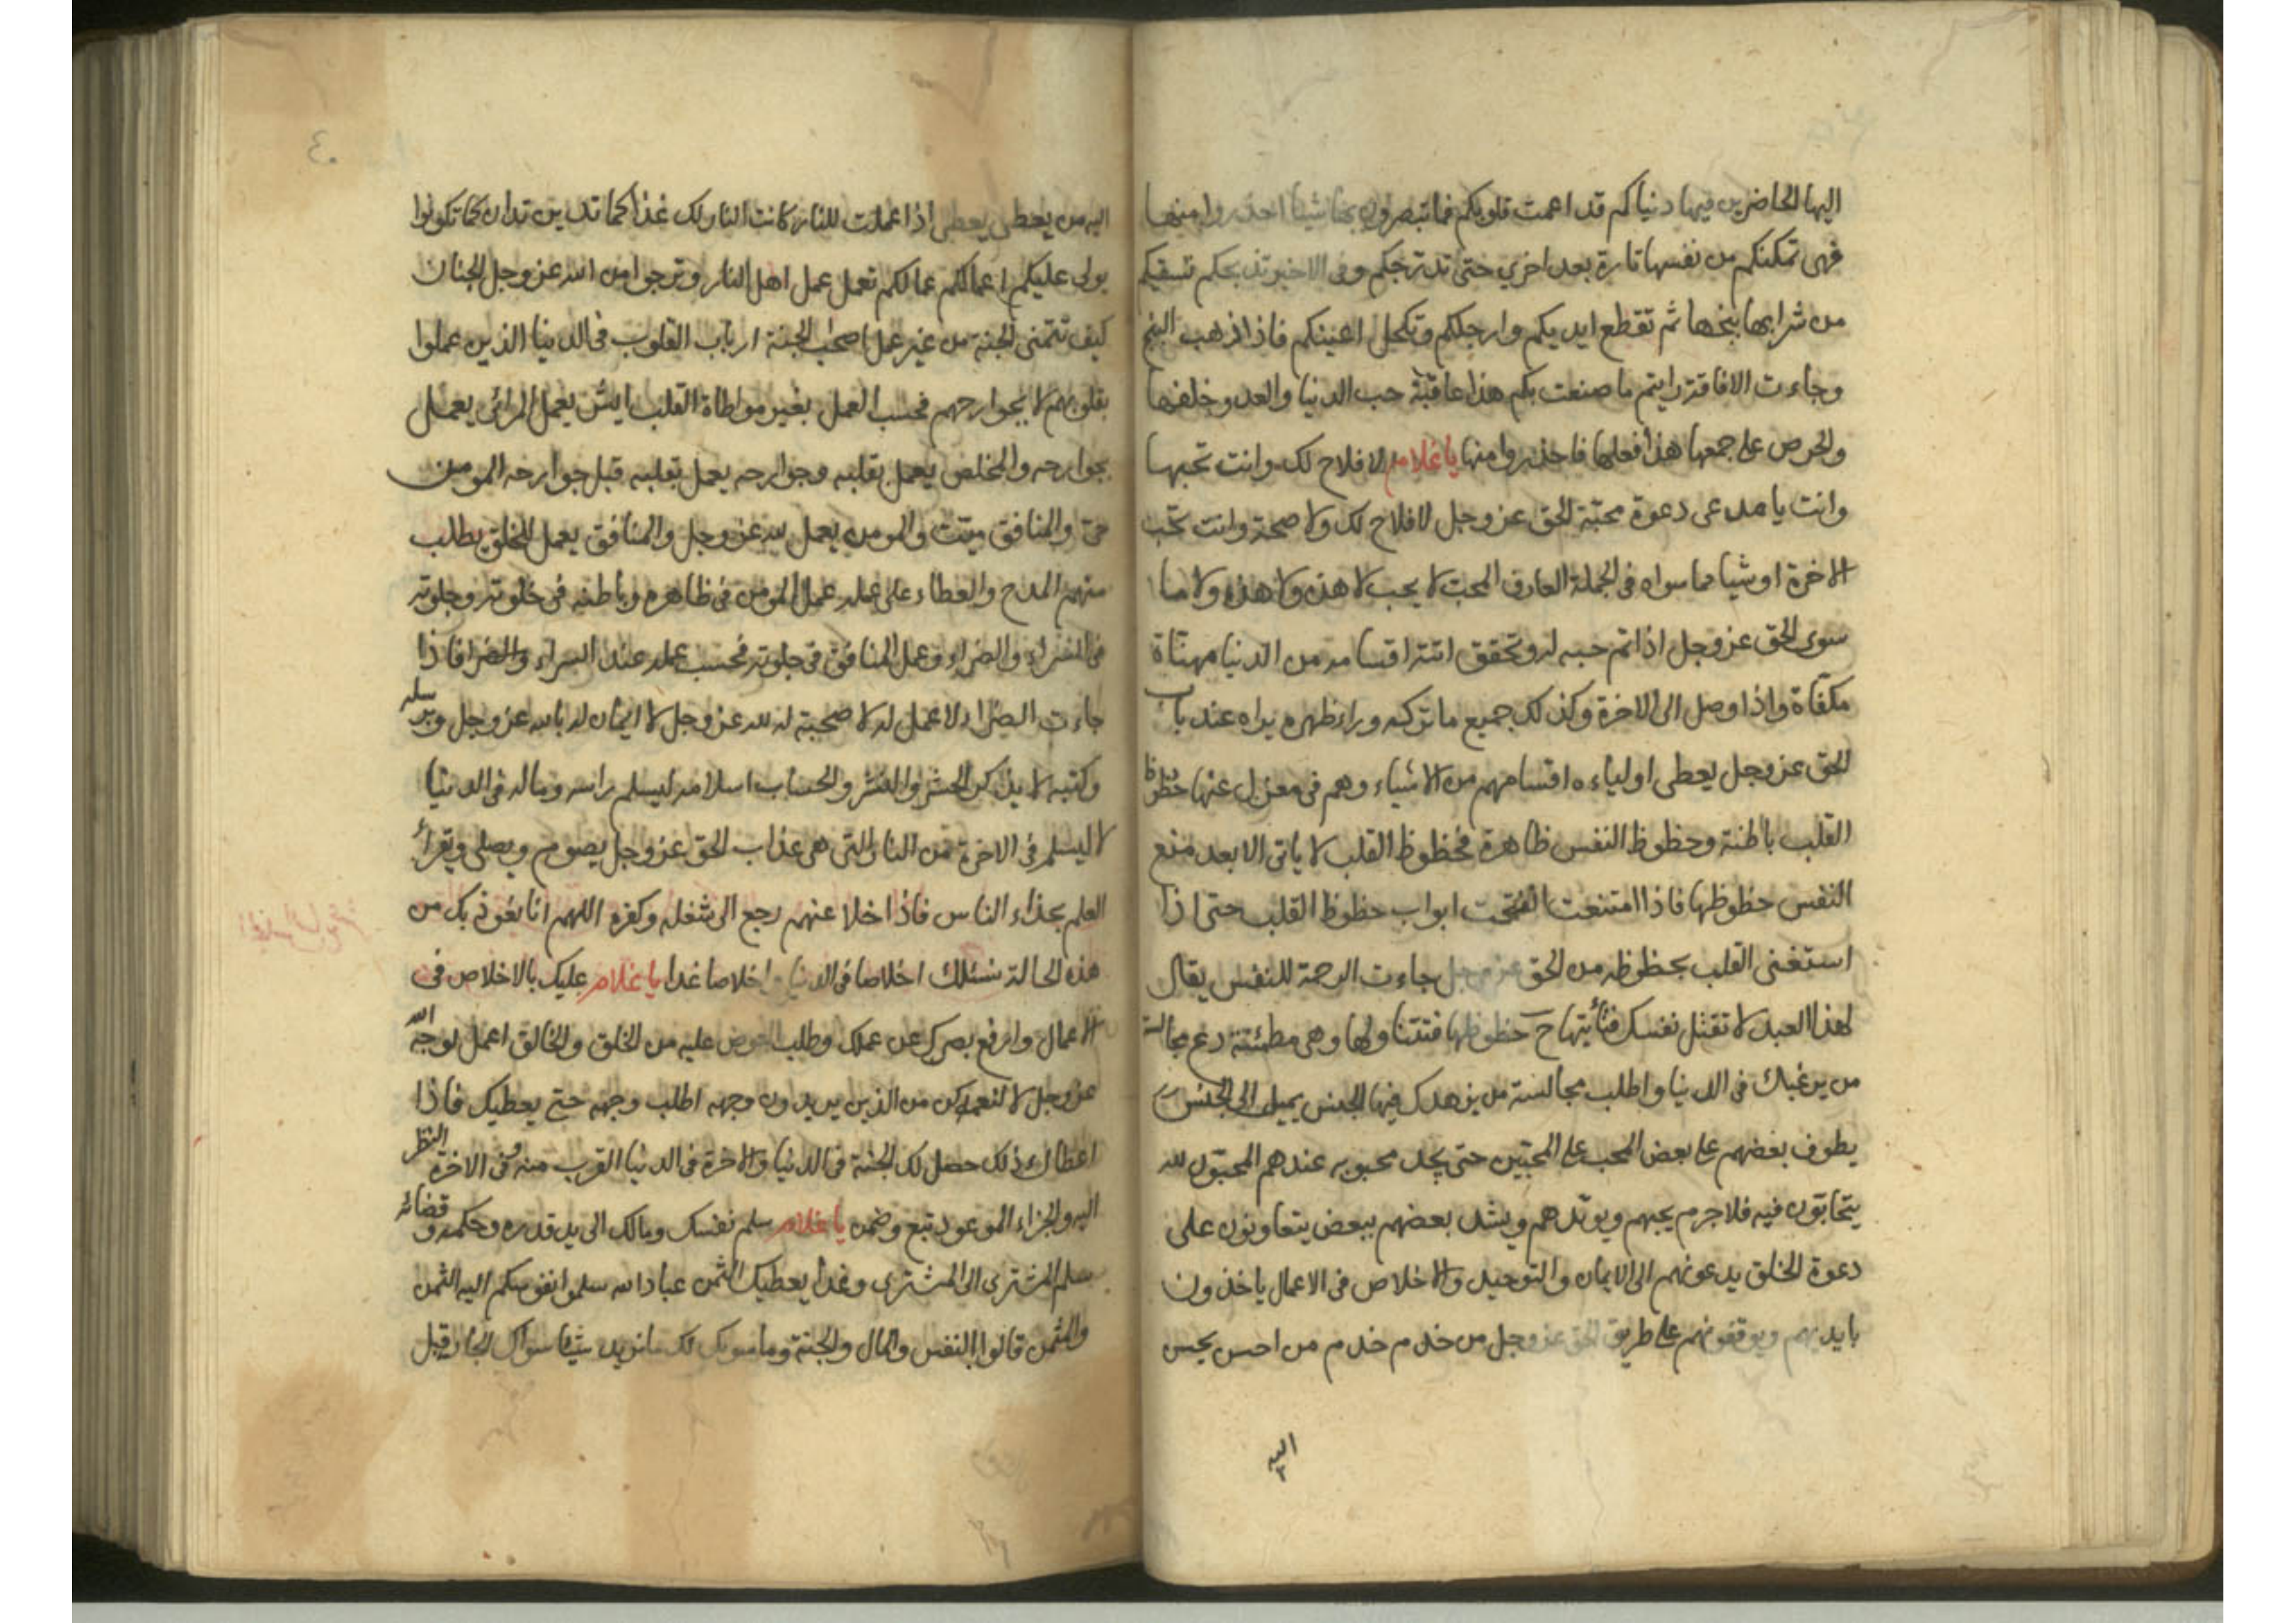 اليها الحاضرين فيها دنياكم قد اعمت قلوبكم فما تبصرون بها شيئا احذروا منها
فهى تمكنكم من نفسها تارة بعد اخري حتى تدرجكم وفى الاخير تذبحكم تسقيكم
من شرابها بنجها ثم تقطع ايديكم وارجلكم وتكحل اعينكم فاذا ذهب البنج
وجاءت الافاقة رايتم ما صنعت بكم هذا عاقبة حب الدنيا والعدو خلفها
والحرص على جمعها هذا فعلها فاحذروا منها يا غلام لا فلاح لك وانت تحبها
وانت يا مدعى دعوة محبّة الحق عز وجل لا فلاح لك ولا صحة وانت تحب
الاخرة او شيا مما سواه فى الجملة العارف المحب لا يحب لا هذه ولا هذه ولا ما
سوى الحق عز وجل اذا تم حبه له وتحقق اتته اقسامه من الدنيا مهنّاة
مكفّاة واذا وصل الى الاخرة وكذلك جميع ما تركه وراء ظهره يراه عند باب
الحق عز وجل يعطى اولياءه اقسامهم من الاشياء وهم فى معزل عنها حظوظ
القلب باطنة وحظوظ النفس ظاهرة فحظوظ القلب لا ياتى الا بعد منع
النفس حظوظها فاذا امتنعت انفتحت ابواب حظوظ القلب حتى اذا
استغنى القلب بحظوظه من الحق عز وجل جاءت الرحمة للنفس يقال
لهذا العبد لا تقتل نفسك فتأتيها ح حظوظها فتتناولها وهى مطمئنة دع مجالسة
من يرغبك فى الدنيا واطلب مجالسة من يزهدك فيها الجنس يميل الى الجنس
يطوف بعضهم على بعض المحب على المحبّين حتى يجد محبوبه عندهم المحبّون لله
يتحابّون فيه فلا جرم يحبهم ويؤيّدهم ويشد بعضهم ببعض يتعاونون على
دعوة الخلق يدعونهم الى الايمان والتوحيد والاخلاص فى الاعمال ياخذون
بايديهم ويوقفونهم على طريق الحق عز وجل من خدم خدم من احسن يحسن
اليه
٤٠
اليه من يعطى يعطى اذا عملت للنار كانت النار لك غذا كما تدين تدان كما تكونوا
يولى عليكم اعمالكم عمالكم تعمل عمل اهل النار وترجوا من الله عز وجل الجنان
كيف تتمنى الجنة من غير عمل اصحاب الجنة ارباب القلوب فى الدنيا الذين عملوا
بقلوبهم لا بجوارحهم فحسب العمل بغير مواطاة القلب ايش يعمل المرائى يعمل
بجوارحه والمخلص يعمل بقلبه وجوارحه يعمل بقلبه قبل جوارحه المومن
حىّ والمنافق ميّت والمومن يعمل لله عز وجل والمنافق يعمل للخلق يطلب
منهم المدح والعطاء على عمله عمل المومن فى ظاهره وباطنه فى خلوته وجلوته
فى السراء والضراء وعمل المنافق فى جلوته فحسب عمله عند السراء والضرا فاذا
جاءت الضراء لا عمل له لا صحبة له لله عز وجل لا ايمان له بالله عز وجل وبرسله
وكتبه لا يذكر الحشر والنشر والحساب اسلامه ليسلم راسه وماله فى الدنيا
لا ليسلم فى الاخرة من النار التى هى عذاب الحق عز وجل يصوم ويصلى ويقرأ
العلم بحذاء الناس فاذا خلا عنهم رجع الى شغله وكفره اللهم انا نعوذ بك من
هذه الحالة نسئلك اخلاصا فى الدنيا واخلاصا غدا يا غلام عليك بالاخلاص فى
الاعمال وارفع بصرك عن عملك وطلب العوض عليه من الخلق والخالق اعمل لوجه الله
عز وجل لا لنعمه كن من الذين يريدون وجهه اطلب وجهه حتى يعطيك فاذا
اعطاك ذلك حصل لك الجنة فى الدنيا والاخرة فى الدنيا القرب منه وفى الاخرة النظر
اليه والجزاء الموعود تبع وضمن يا غلام سلم نفسك ومالك الى يد قدره وحكمه وقضائه
سلم المشترى الى المشترى وغدا يعطيك الثمن عباد الله سلموا نفوسكم اليه الثمن
والمثمن قالوا النفس والمال والجنة وما سواك لك ما نريد شيئا سواك الجار قبل